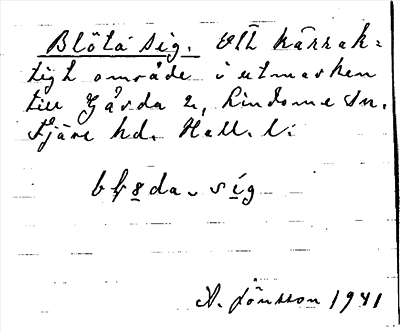 Blöta sig. Ett kärrak=
tigt område i utmarken
till Gårda 2, Lindome sn.
Fjäre hd. Hall. l.
da. sig
A. Jönsson 1941